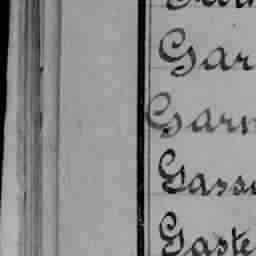 Gar
Garn
Gasse
Gaste